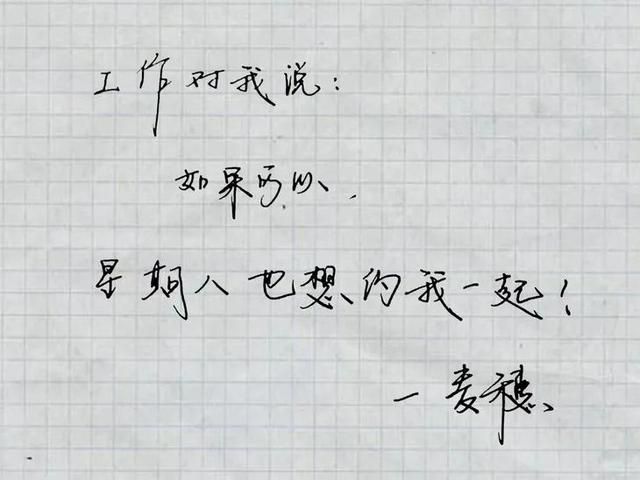 工作对我说:
如果可以,
星期八也想约我一起!
一麦穗